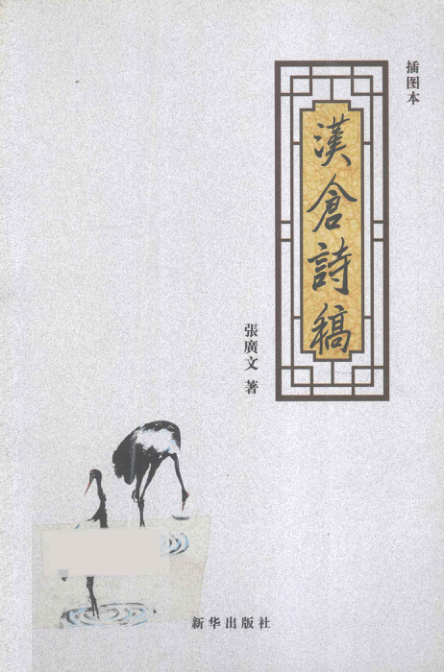 插图本
漢倉詩稿
張廣文 著
新华出版社